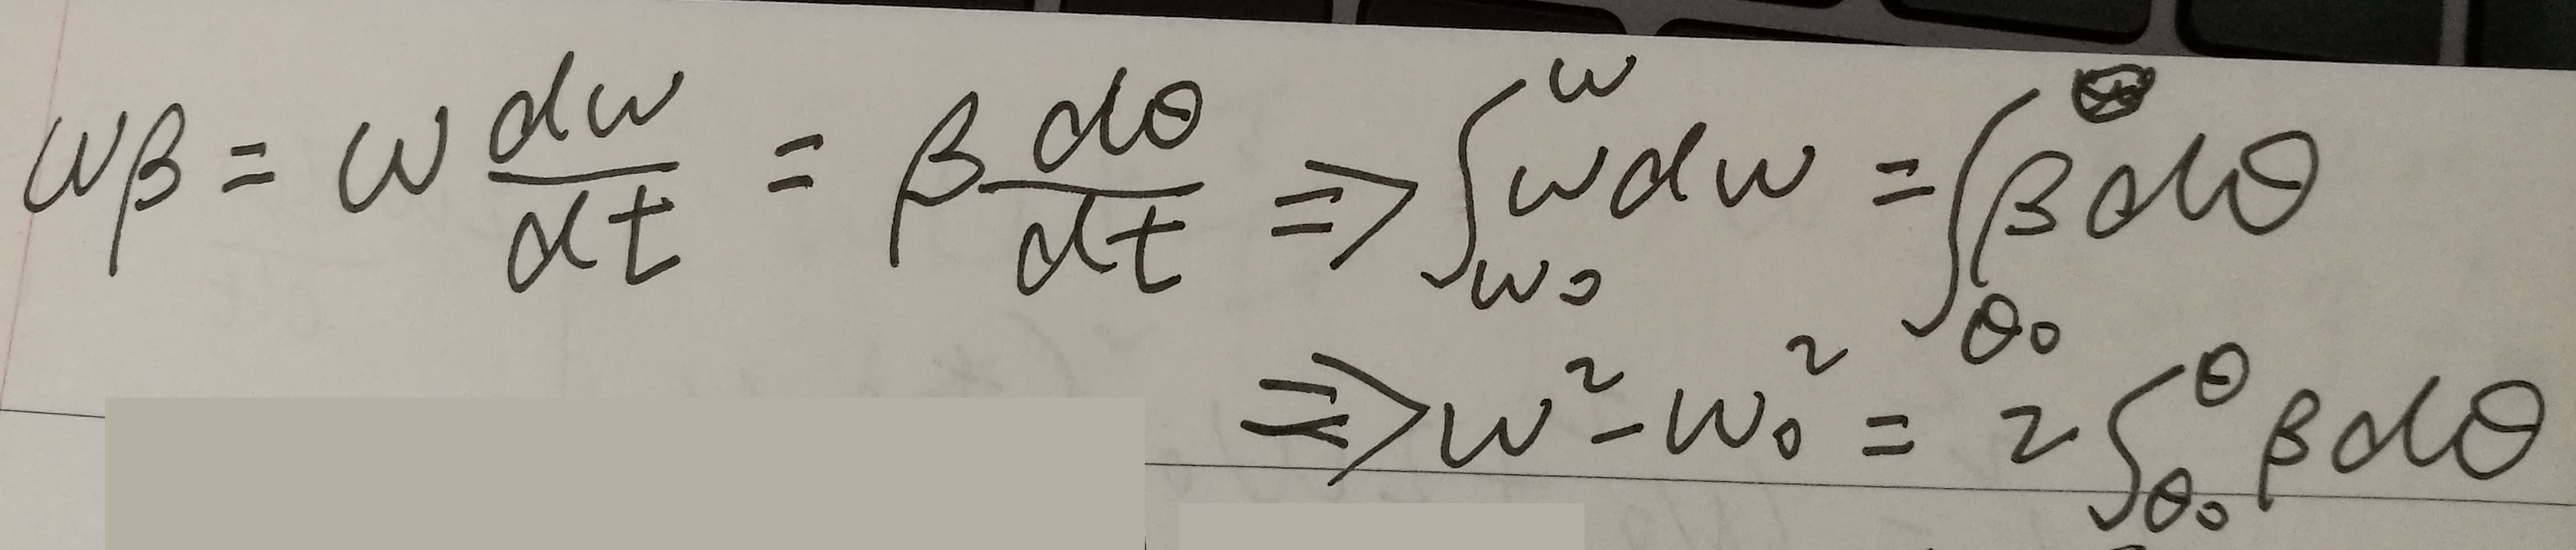 ωβ = ω dω/dt = β dθ/dt ⇒ ∫_{ω₀}^{ω} ω dω = ∫_{θ₀} β dθ
⇒ ω² - ω₀² = 2 ∫_{θ₀}^{θ} β dθ